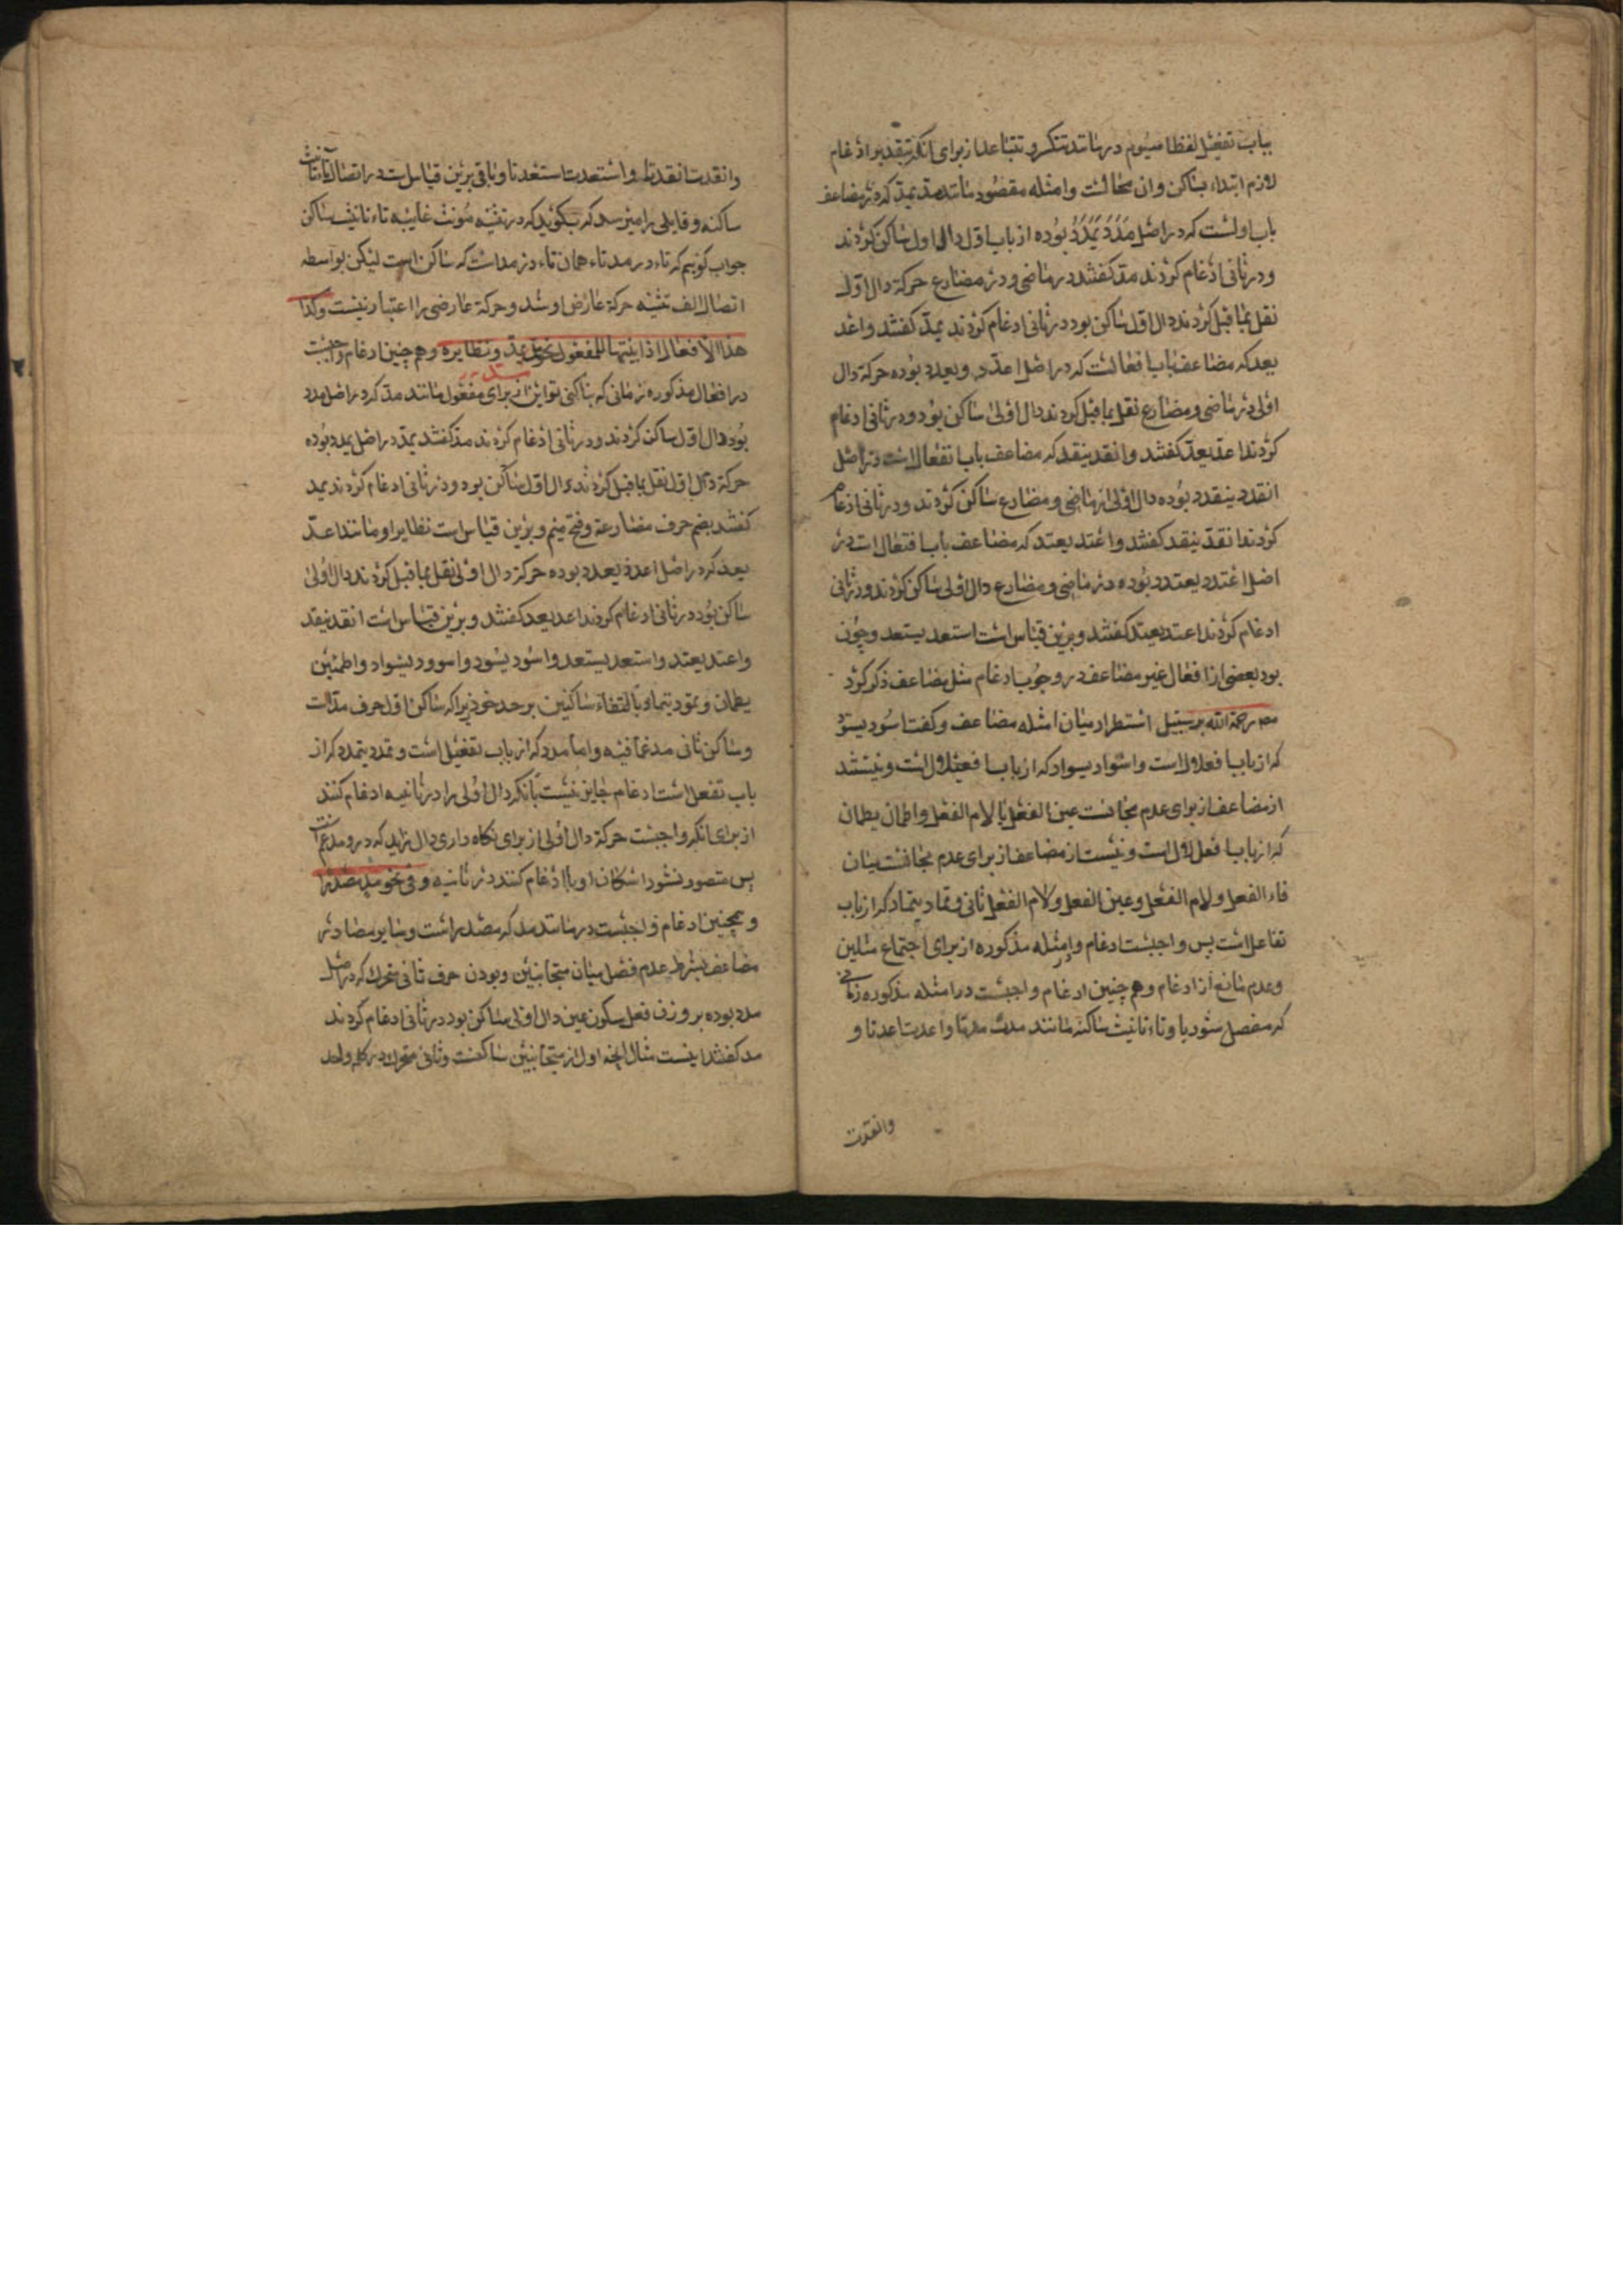 بباب تفعیل لفظا میشوم در مانند تتکر و تتباعد از برای آنکه بتقدیر ادغام
لازم ابتداء بساکن وان محالست وامثله مقصود مانند مدّ یمدّ که در مضاعف
باب اولست که در اصل مَدَدَ یَمْدُدُ بوده از باب اول دال اول ساکن کردند
ودر ثانی ادغام کردند مدّ کفتند در ماضی ودر مضارع حرکة دال اول
نقل بما قبل کردند دال اول ساکن بود در ثانی ادغام کردند یمدّ کفتند واعد
یعد که مضاعف باب افعالست که در اصل اعدد ویعدد بوده حرکة دال
اولی در ماضی ومضارع نقل بما قبل کردند دال اولی ساکن بود ودر ثانی ادغام
کردند اعدّ یعدّ کفتند وانقد ینقد که مضاعف باب انفعال است در اصل
انقدد ینقدد بوده دال اولی از ماضی ومضارع ساکن کردند ودر ثانی ادغام
کردند انقدّ ینقد کفتند واعتد یعتد که مضاعف باب افتعال است در
اصل اعتدد یعتدد بوده در ماضی ومضارع دال اولی ساکن کردند ودر ثانی
ادغام کردند اعتد یعتد کفتند وبرین قیاس است استعد یستعد وچون
بود بعضی از افعال غیر مضاعف در وجوب ادغام مثل مضاعف ذکر کرد
مص رحمة الله بر سبیل استطراد میان امثله مضاعف وکفت اسود یسود
که از باب افعلال است واسواد یسواد که از باب افعیلال است ونیستند
از مضاعف از برای عدم مجانست عین الفعل با لام الفعل واطمان یطمان
که از باب افعللال است ونیست از مضاعف از برای عدم مجانست میان
فاء الفعل ولام الفعل وعین الفعل ولام الفعل ثانی وتماد یتماد که از باب
تفاعل است پس واجبست ادغام در امثله مذکوره از برای اجتماع مثلین
وعدم مانع از ادغام وهم چنین ادغام واجبست در امثله مذکوره زمانی
که متصل شود با وتاء تانیث ساکنه مانند مدت مدتا واعدت اعدتا و
وانقدت
وانقدت انقدتا واستعدت استعدتا وباقی برین قیاس است در اتصال تاء تانیث
ساکنه وقایلی را میرسد که بکوئید که در تثنیه مؤنث غایبه تاء تانیث ساکن
جواب کوئیم که تاء در مدتاء همان تاء در مدتست که ساکن است لیکن بواسطه
اتصال الف تثنیه حرکة عارض او شد وحرکة عارضی را اعتبار نیست وکذا
هذا الافعال اذا بنیتها للمفعول نحو مدّ یمدّ ونظایره وهم چنین ادغام واجبست
در افعال مذکوره زمانی که بنا کنی تو این از برای مفعول مانند مدّ که در اصل مدد
بود دال اول ساکن کردند ودر ثانی ادغام کردند مد کفتند یمدّ در اصل یمدد بوده
حرکة دال اول نقل بما قبل کردند دال اول ساکن بود ودر ثانی ادغام کردند یمد
کفتند بضم حرف مضارعة وفتح میم وبرین قیاس است نظایر او مانند اعدّ
یعد که در اصل اعدد یعدد بوده حرکة دال اولی نقل بما قبل کردند دال اولی
ساکن بود در ثانی ادغام کردند اعد یعد کفتند وبرین قیاس است انقد ینقد
واعتد یعتد واستعد یستعد واسود یسود واسوود یسواد واطمئین
یطمان وتمود یتماد بالتقاء ساکنین بر حد خود زیرا که ساکن اول حرف مدّ است
وساکن ثانی مدغم فیه واما مدد که از باب تفعیل است وتمدد یتمدد که از
باب تفعل است ادغام جایز نیست بآنکه دال اولی را در ثانیه ادغام کنند
از برای آنکه واجبست حرکة دال اولی از برای نکاه داری دال زاید که در و مدغم است
پس متصور نشود اسکان او با ادغام کنند در ثانیه وفی نحو مدّ مصدرا
وهمچنین ادغام واجبست در مانند مد که مصدر است وسایر مصادر
مضاعف بشرط عدم فصل میان متجانسین وبودن حرف ثانی متحرک که در اصل
مدد بوده بر وزن فعل بسکون عین دال اولی ساکن بود در ثانی ادغام کردند
مد کفتند اینست مثال انچه اول از متجانسین ساکنست وثانی متحرک در کلمه واحد